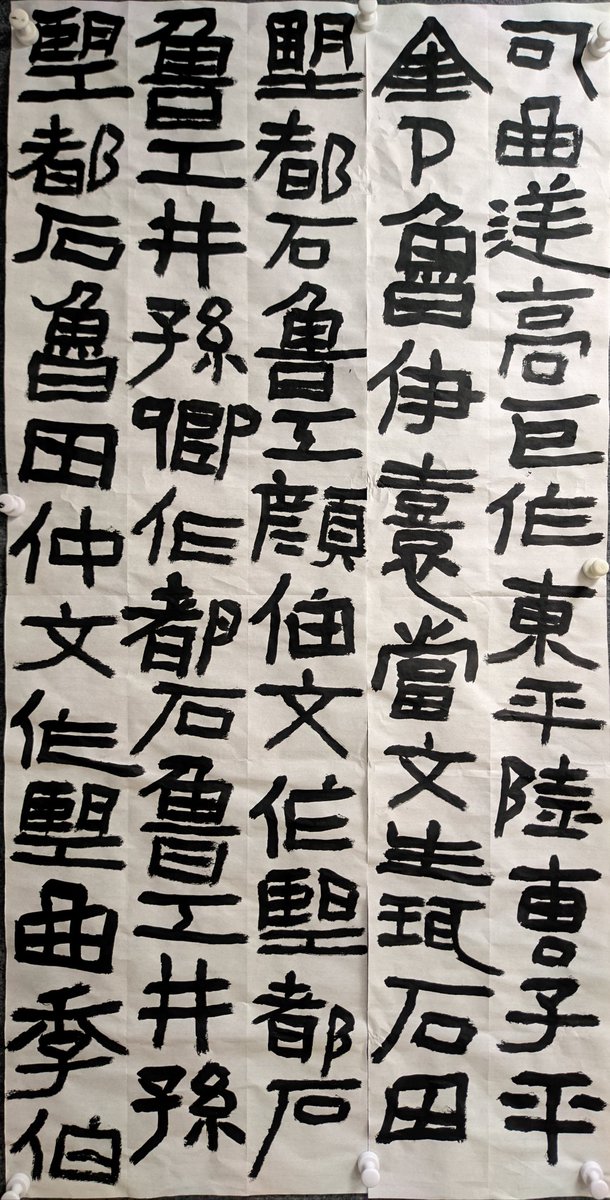 曲高巨作東平陸曹子平
金卩魯伊袁當文生石田
都石魯工顏伯文作都石
魯工井孫卿作都石魯工井孫
都石魯田仲文作曲季伯